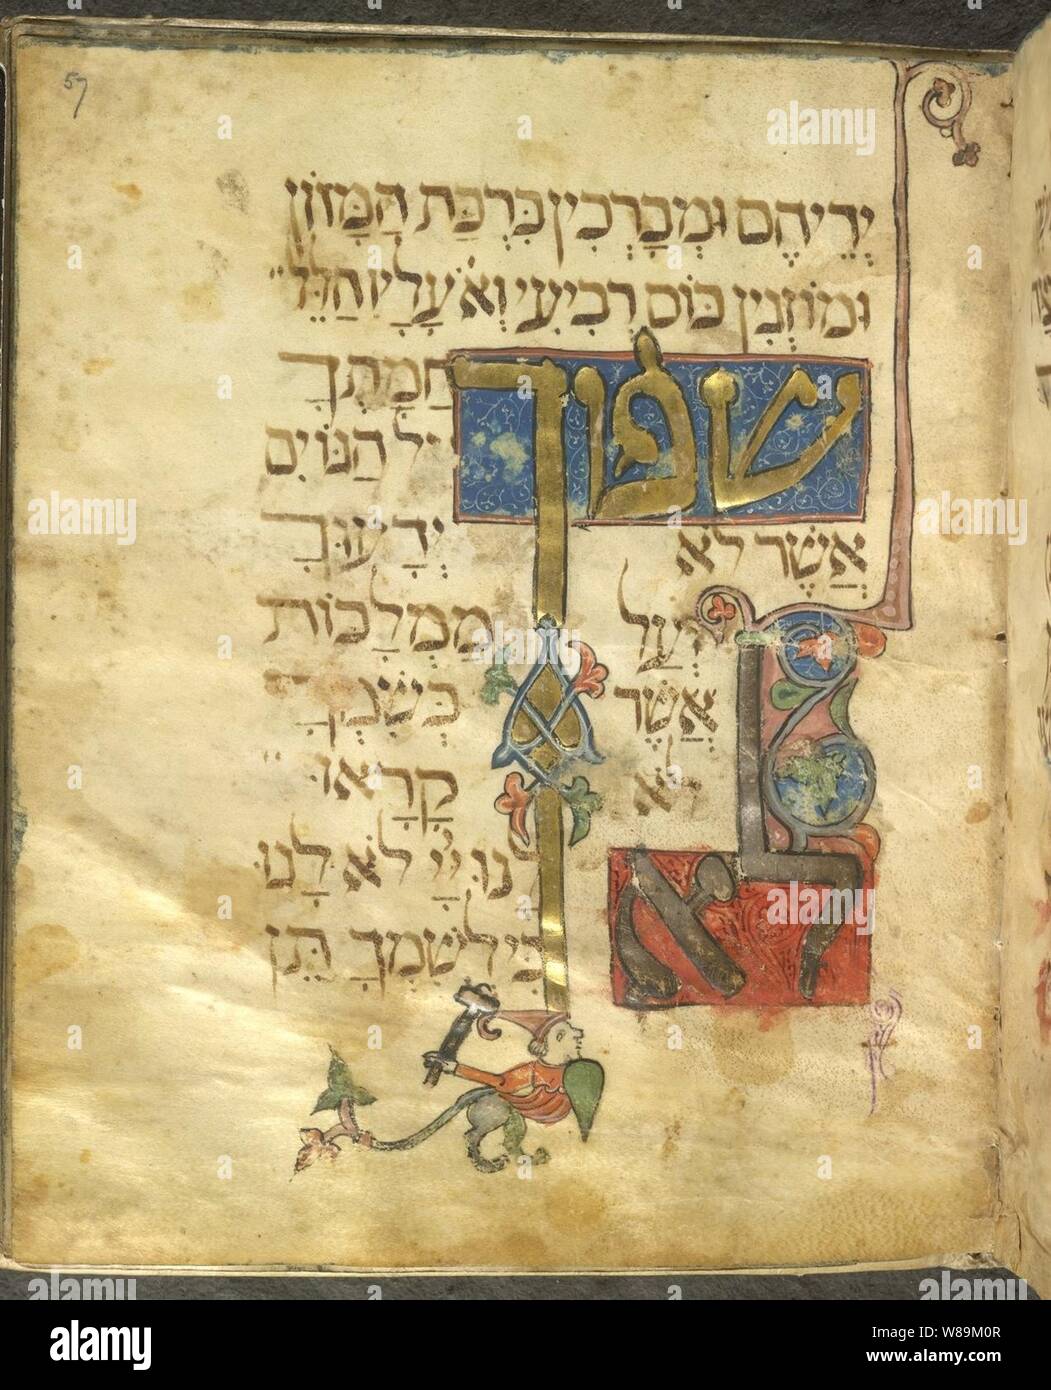 57
יְדֵיהֶם וּמְבָרְכִין בִּרְכַּת הַמָּזוֹן
וּמוֹזְגִין כּוֹס רְבִיעִי וְא֗ עָלָיו הַלֵּל
שפוך חֲמָתְךָ
הַגּוֹיִם
אֲשֶׁר לֹא יְדָעוּךָ
וְעַל מַמְלָכוֹת
אֲשֶׁר בְּשִׁמְךָ
לֹא קָרָאוּ
לא לָנוּ יְיָ לֹא לָנוּ
כִּי לְשִׁמְךָ תֵּן
alamy
alamy
Image ID: W89M0R
www.alamy.com